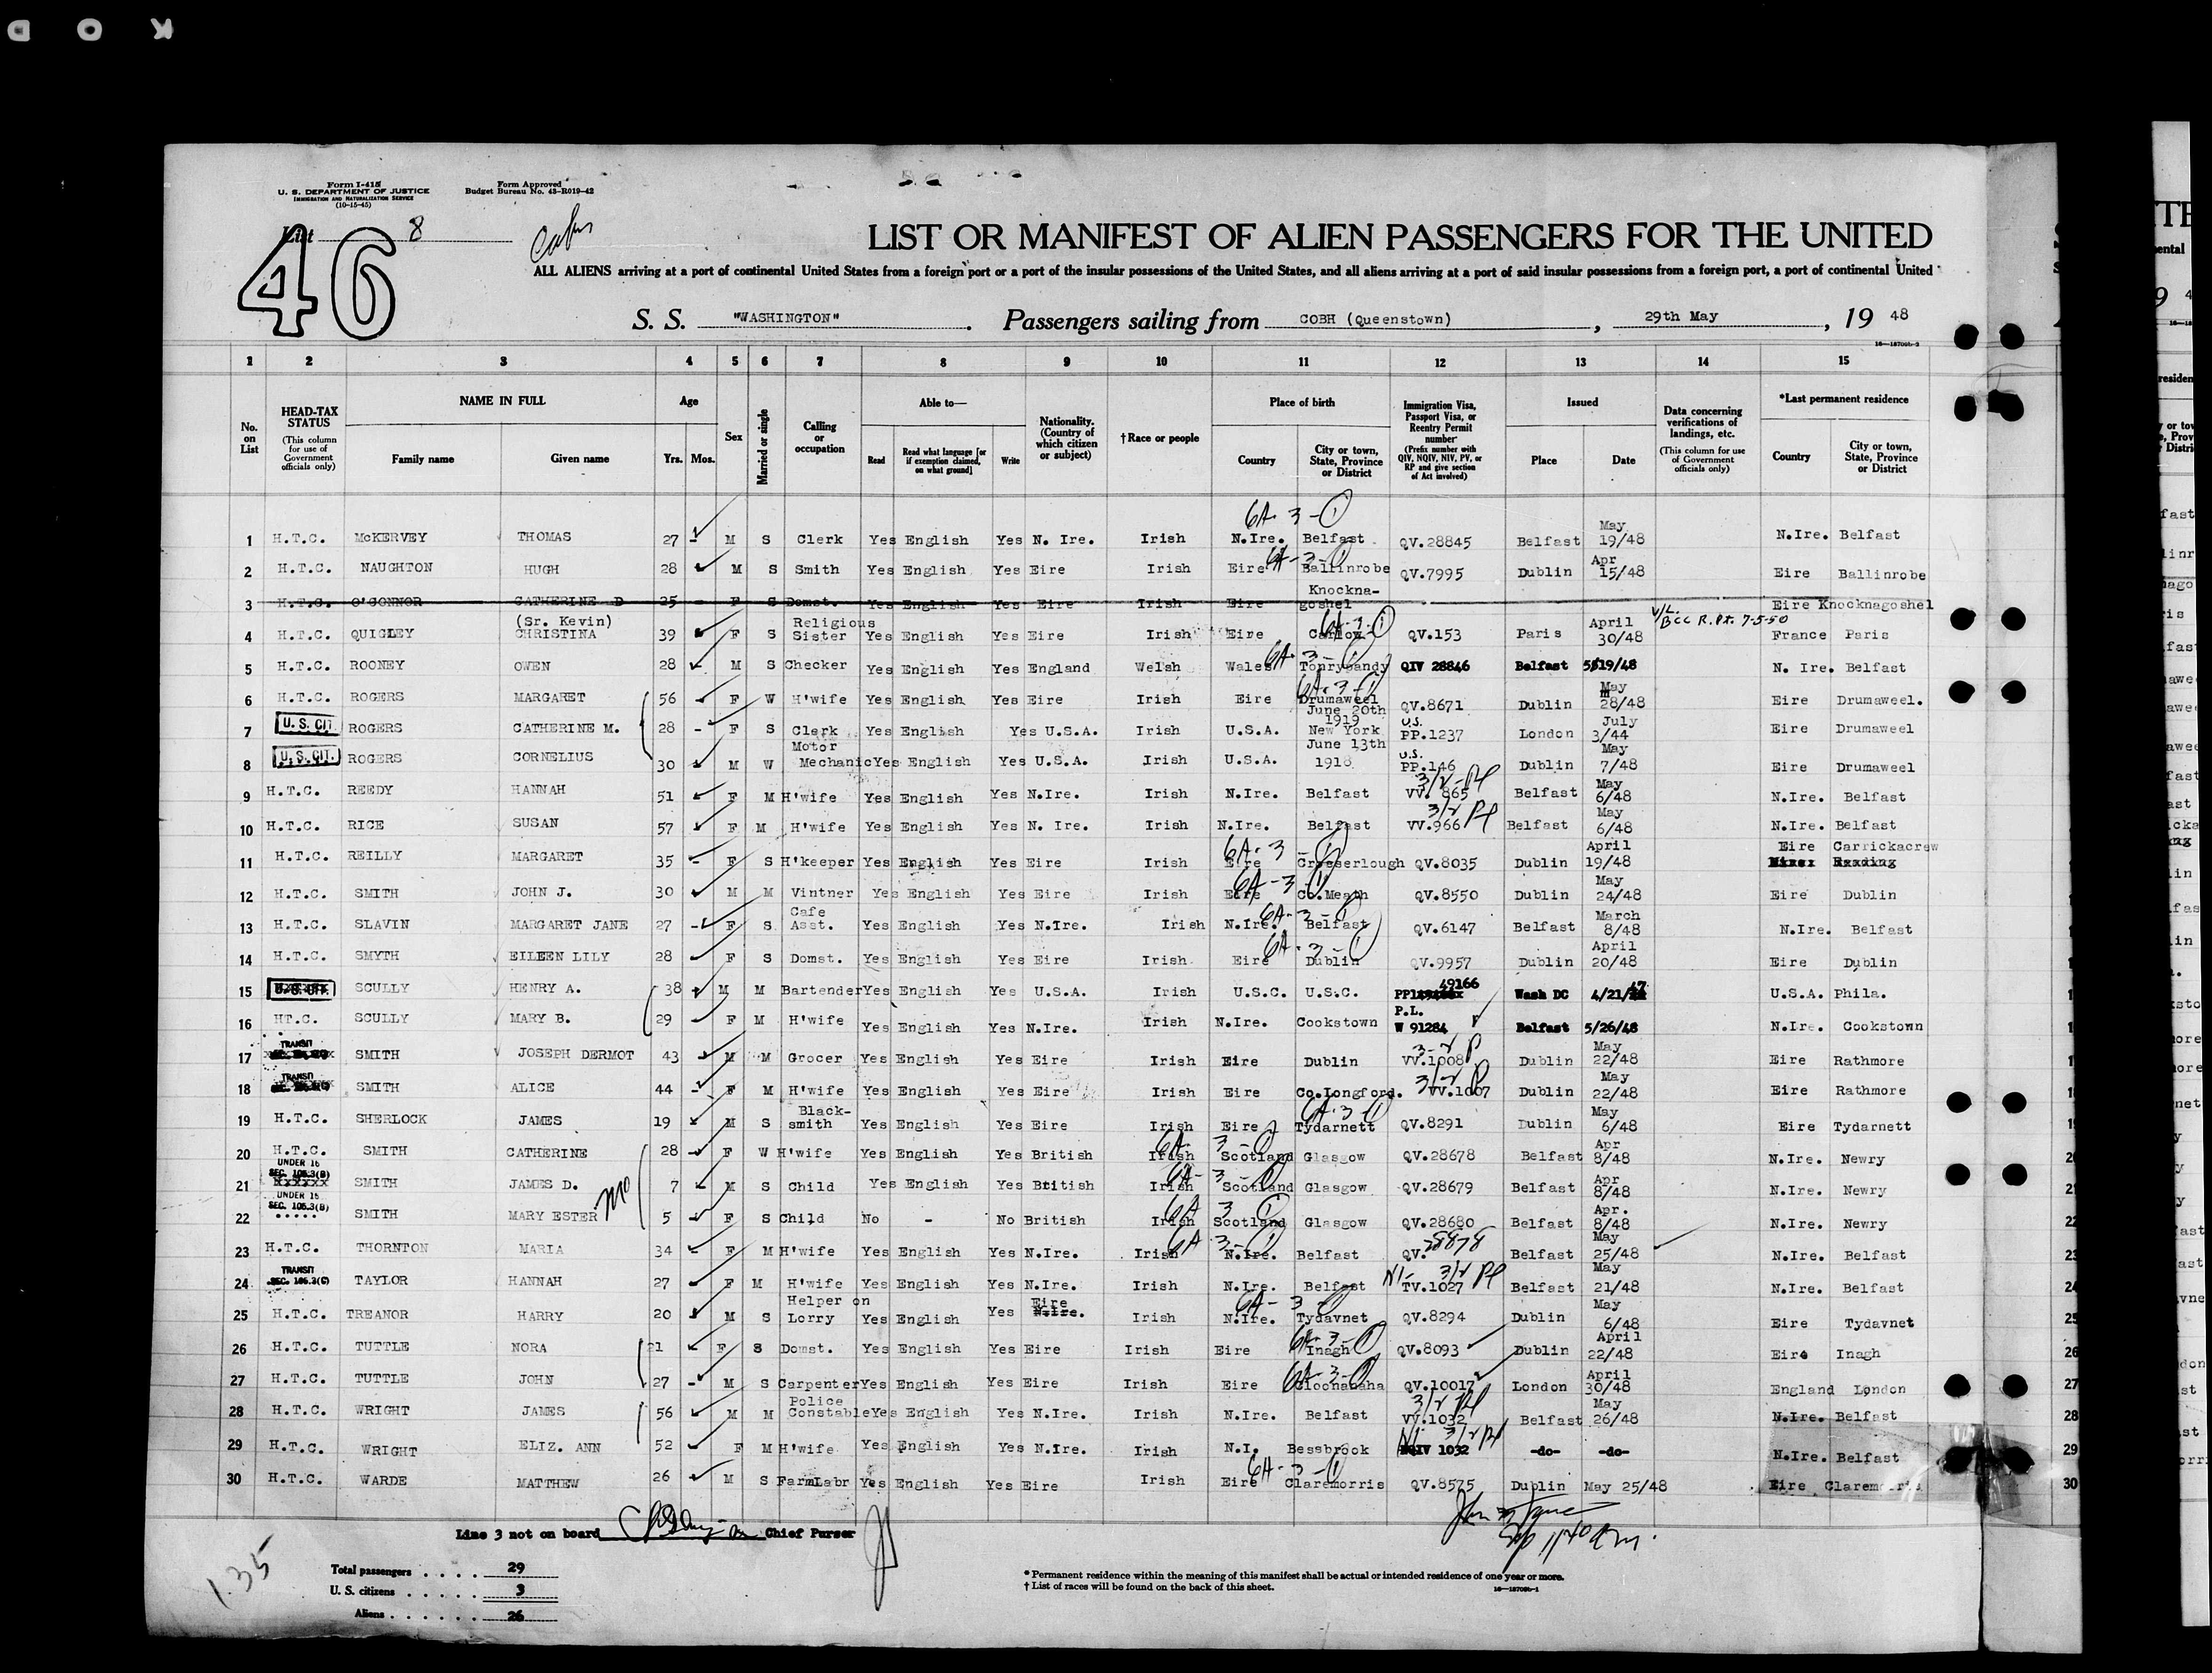 K O D
Form I-415
U. S. DEPARTMENT OF JUSTICE
IMMIGRATION AND NATURALIZATION SERVICE
(10-15-45)
Form Approved
Budget Bureau No. 43-R019-42
List 8
46
LIST OR MANIFEST OF ALIEN PASSENGERS FOR THE UNITED
ALL ALIENS arriving at a port of continental United States from a foreign port or a port of the insular possessions of the United States, and all aliens arriving at a port of said insular possessions from a foreign port, a port of continental United
S. S. "WASHINGTON". Passengers sailing from COBH (Queenstown), 29th May, 19 48
1 2 3 4 5 6 7 8 9 10 11 12 13 14 15
No. on List
HEAD-TAX STATUS (This column for use of Government officials only)
NAME IN FULL Family name Given name
Age Yrs. Mos.
Sex
Married or single
Calling or occupation
Able to— Read Read what language [or if exemption claimed, on what ground] Write
Nationality. (Country of which citizen or subject)
†Race or people
Place of birth Country City or town, State, Province or District
Immigration Visa, Passport Visa, or Reentry Permit number (Prefix number with QIV, NQIV, NIV, PV, or RP and give section of Act involved)
Issued Place Date
Data concerning verifications of landings, etc. (This column for use of Government officials only)
*Last permanent residence Country City or town, State, Province or District
6A-3-1
1 H.T.C. McKERVEY THOMAS 27 - M S Clerk Yes English Yes N. Ire. Irish N.Ire. Belfast QV.28845 Belfast May 19/48 N.Ire. Belfast
6A-3-1
2 H.T.C. NAUGHTON HUGH 28 M S Smith Yes English Yes Eire Irish Eire Ballinrobe QV.7995 Dublin Apr 15/48 Eire Ballinrobe
3 H.T.C. O'CONNOR CATHERINE D 25 - F S Domst. Yes English Yes Eire Irish Eire Knockna-goshel Eire Knocknagoshel
6A-3-1
4 H.T.C. QUIGLEY (Sr. Kevin) CHRISTINA 39 F S Religious Sister Yes English Yes Eire Irish Eire Carlow QV.153 Paris April 30/48 V/L. Bcc R.Pt. 7-5-50 France Paris
6A-3-1
5 H.T.C. ROONEY OWEN 28 M S Checker Yes English Yes England Welsh Wales Tonrypandy QIV 28846 Belfast 5/19/48 N. Ire. Belfast
6A-3-1
6 H.T.C. ROGERS MARGARET 56 F W H'wife Yes English Yes Eire Irish Eire Drumaweel QV.8671 Dublin May 28/48 Eire Drumaweel.
7 U.S. CIT. ROGERS CATHERINE M. 28 - F S Clerk Yes English Yes U.S.A. Irish U.S.A. June 20th 1919 New York U.S. PP.1237 London July 3/44 Eire Drumaweel
8 U.S. CIT. ROGERS CORNELIUS 30 M W Motor Mechanic Yes English Yes U.S.A. Irish U.S.A. June 13th 1918 U.S. PP.146 Dublin May 7/48 Eire Drumaweel
9 H.T.C. REEDY HANNAH 51 F M H'wife Yes English Yes N.Ire. Irish N.Ire. Belfast 3/2 Pl VV. 865 Belfast May 6/48 N.Ire. Belfast
10 H.T.C. RICE SUSAN 57 F M H'wife Yes English Yes N. Ire. Irish N.Ire. Belfast 3/2 Pl VV.966 Belfast May 6/48 N.Ire. Belfast
6A-3-1
11 H.T.C. REILLY MARGARET 35 - F S H'keeper Yes English Yes Eire Irish Eire Crosserlough QV.8035 Dublin April 19/48 Eire Carrickacrew
6A-3-1
12 H.T.C. SMITH JOHN J. 30 M M Vintner Yes English Yes Eire Irish Eire Co.Meath QV.8550 Dublin May 24/48 Eire Dublin
6A-3-1
13 H.T.C. SLAVIN MARGARET JANE 27 - F S Cafe Asst. Yes English Yes N.Ire. Irish N.Ire. Belfast QV.6147 Belfast March 8/48 N.Ire. Belfast
6A-3-1
14 H.T.C. SMYTH EILEEN LILY 28 F S Domst. Yes English Yes Eire Irish Eire Dublin QV.9957 Dublin April 20/48 Eire Dublin
15 U.S. CIT. SCULLY HENRY A. 38 M M Bartender Yes English Yes U.S.A. Irish U.S.C. U.S.C. PP 49166 Wash DC 4/21/47 U.S.A. Phila.
16 HT.C. SCULLY MARY B. 29 F M H'wife Yes English Yes N.Ire. Irish N.Ire. Cookstown P.L. W 91284 Belfast 5/26/48 N.Ire. Cookstown
17 TRANSIT SMITH JOSEPH DERMOT 43 M M Grocer Yes English Yes Eire Irish Eire Dublin 3-2 P VV.1008 Dublin May 22/48 Eire Rathmore
18 TRANSIT SMITH ALICE 44 - F M H'wife Yes English Yes Eire Irish Eire Co.Longford. 3/2 P VV.1007 Dublin May 22/48 Eire Rathmore
6A-3-1
19 H.T.C. SHERLOCK JAMES 19 M S Black-smith Yes English Yes Eire Irish Eire Tydarnett QV.8291 Dublin May 6/48 Eire Tydarnett
6A-3-1
20 H.T.C. SMITH CATHERINE 28 F W H'wife Yes English Yes British Irish Scotland Glasgow QV.28678 Belfast Apr 8/48 N.Ire. Newry
6A-3-1
21 UNDER 16 SEC. 105.3(B) SMITH JAMES D. 7 M S Child Yes English Yes British Irish Scotland Glasgow QV.28679 Belfast Apr 8/48 N.Ire. Newry
6A 3-1
22 UNDER 16 SEC. 105.3(B) SMITH MARY ESTER 5 F S Child No - No British Irish Scotland Glasgow QV.28680 Belfast Apr. 8/48 N.Ire. Newry
6A 3-1
23 H.T.C. THORNTON MARIA 34 F M H'wife Yes English Yes N.Ire. Irish N.Ire. Belfast QV. 28878 Belfast May 25/48 N.Ire. Belfast
24 TRANSIT SEC. 106.3(C) TAYLOR HANNAH 27 F M H'wife Yes English Yes N.Ire. Irish N.Ire. Belfast NI- 3/2 Pl TV.1027 Belfast May 21/48 N.Ire. Belfast
6A-3-1
25 H.T.C. TREANOR HARRY 20 M S Helper on Lorry Yes English Yes Eire N.Ire. Irish N.Ire. Tydavnet QV.8294 Dublin May 6/48 Eire Tydavnet
6A-3-1
26 H.T.C. TUTTLE NORA 21 F S Domst. Yes English Yes Eire Irish Eire Inagh QV.8093 Dublin April 22/48 Eire Inagh
6A-3-1
27 H.T.C. TUTTLE JOHN 27 - M S Carpenter Yes English Yes Eire Irish Eire Cloonanaha QV.10017 London April 30/48 England London
28 H.T.C. WRIGHT JAMES 56 M M Police Constable Yes English Yes N.Ire. Irish N.Ire. Belfast 3/2 Pl VV.1032 Belfast May 26/48 N.Ire. Belfast
29 H.T.C. WRIGHT ELIZ. ANN 52 F M H'wife Yes English Yes N.Ire. Irish N.I. Bessbrook NI- 3/2 Pl 1032 -do- -do- N.Ire. Belfast
6A-3-1
30 H.T.C. WARDE MATTHEW 26 M S FarmLabr Yes English Yes Eire Irish Eire Claremorris QV.8575 Dublin May 25/48 Eire Claremorris
Line 3 not on board Chief Purser
135
Total passengers . . . . 29
U. S. citizens . . . . . 3
Aliens . . . . . . 26
* Permanent residence within the meaning of this manifest shall be actual or intended residence of one year or more.
† List of races will be found on the back of this sheet.